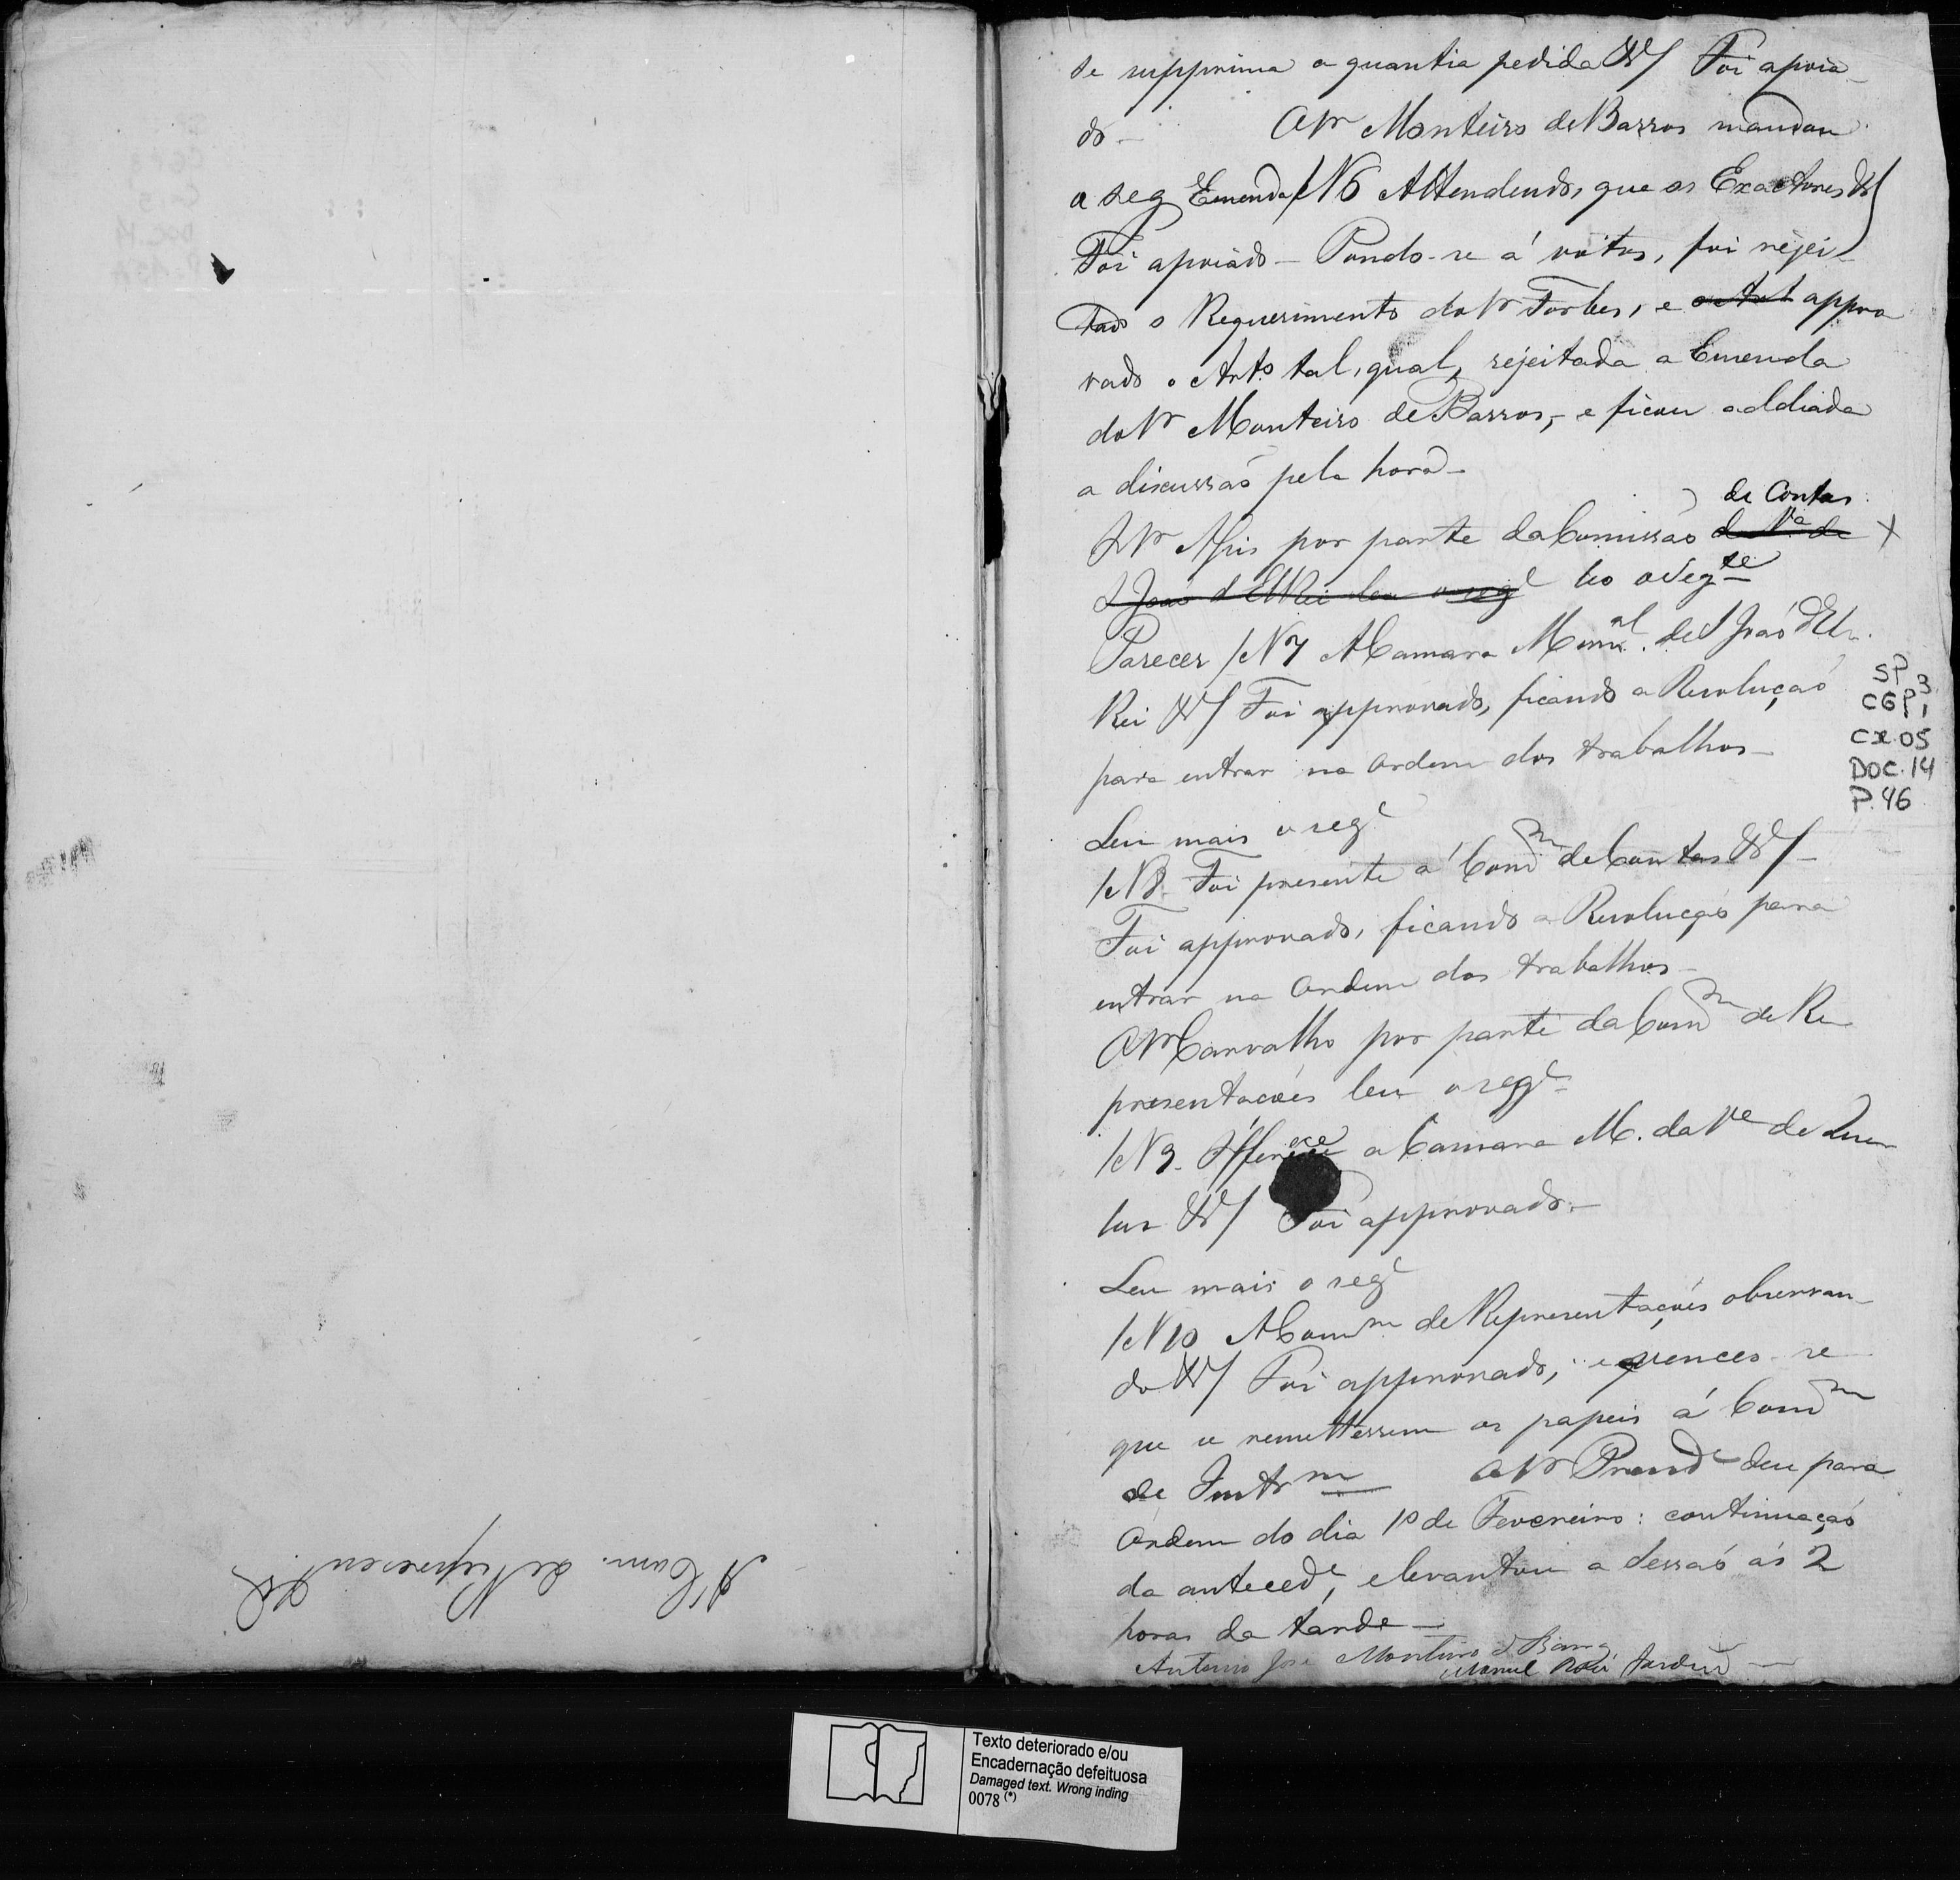 se supprima a quantia pedida &/ Foi apoia-
do - O Sr Monteiro de Barros mandou
a seg Emenda /N 6 Attendendo, que os Exactores &/
Foi apoiado - Pondo-se á votos, foi rejei-
tado o Requerimento do Sr Forbes, e o Art appro
vado o Arto tal, qual, rejeitada a Emenda
do Sr Monteiro de Barros, e ficou addiada
a discussaõ pela hora -
de Contas
O Sr Assis por parte da Comissaõ da Va de X
S Joaõ d El Rei leu o sege leo o Segte
Parecer /N 7 A Camara Munal. de S Joaõ d'El
Rei &/ Foi approvado, ficando a Resoluçaõ
para entrar na ordem dos trabalhos -
SP 3
CGP 1
CX. 05
DOC. 14
P. 46
Leu mais o sege
/N 8. Foi presente á Comm de Contas &/ -
Foi approvado, ficando a Resoluçaõ para
entrar na ordem dos trabalhos -
O Sr Carvalho por parte da Comm de Re
presentações leu o sege
/N 9. Offerece a Camara M. da Va de Que
luz &/ Foi approvado. -
Leu mais o sege
/N 10 A Comm de Representações observan-
do &/ Foi approvado, e venceo-se
que se remettessem os papeis á Comm
de Instrm O Sr Preside deu para
Ordem do dia 1o de Fevereiro: continuaçaõ
da antecede, e levantou a Sessaõ ás 2
horas da tarde -
Antonio José Monteiro de Barros
Manuel José
A Com. de Represent &
Texto deteriorado e/ou
Encadernação defeituosa
Damaged text. Wrong inding
0078 (*)